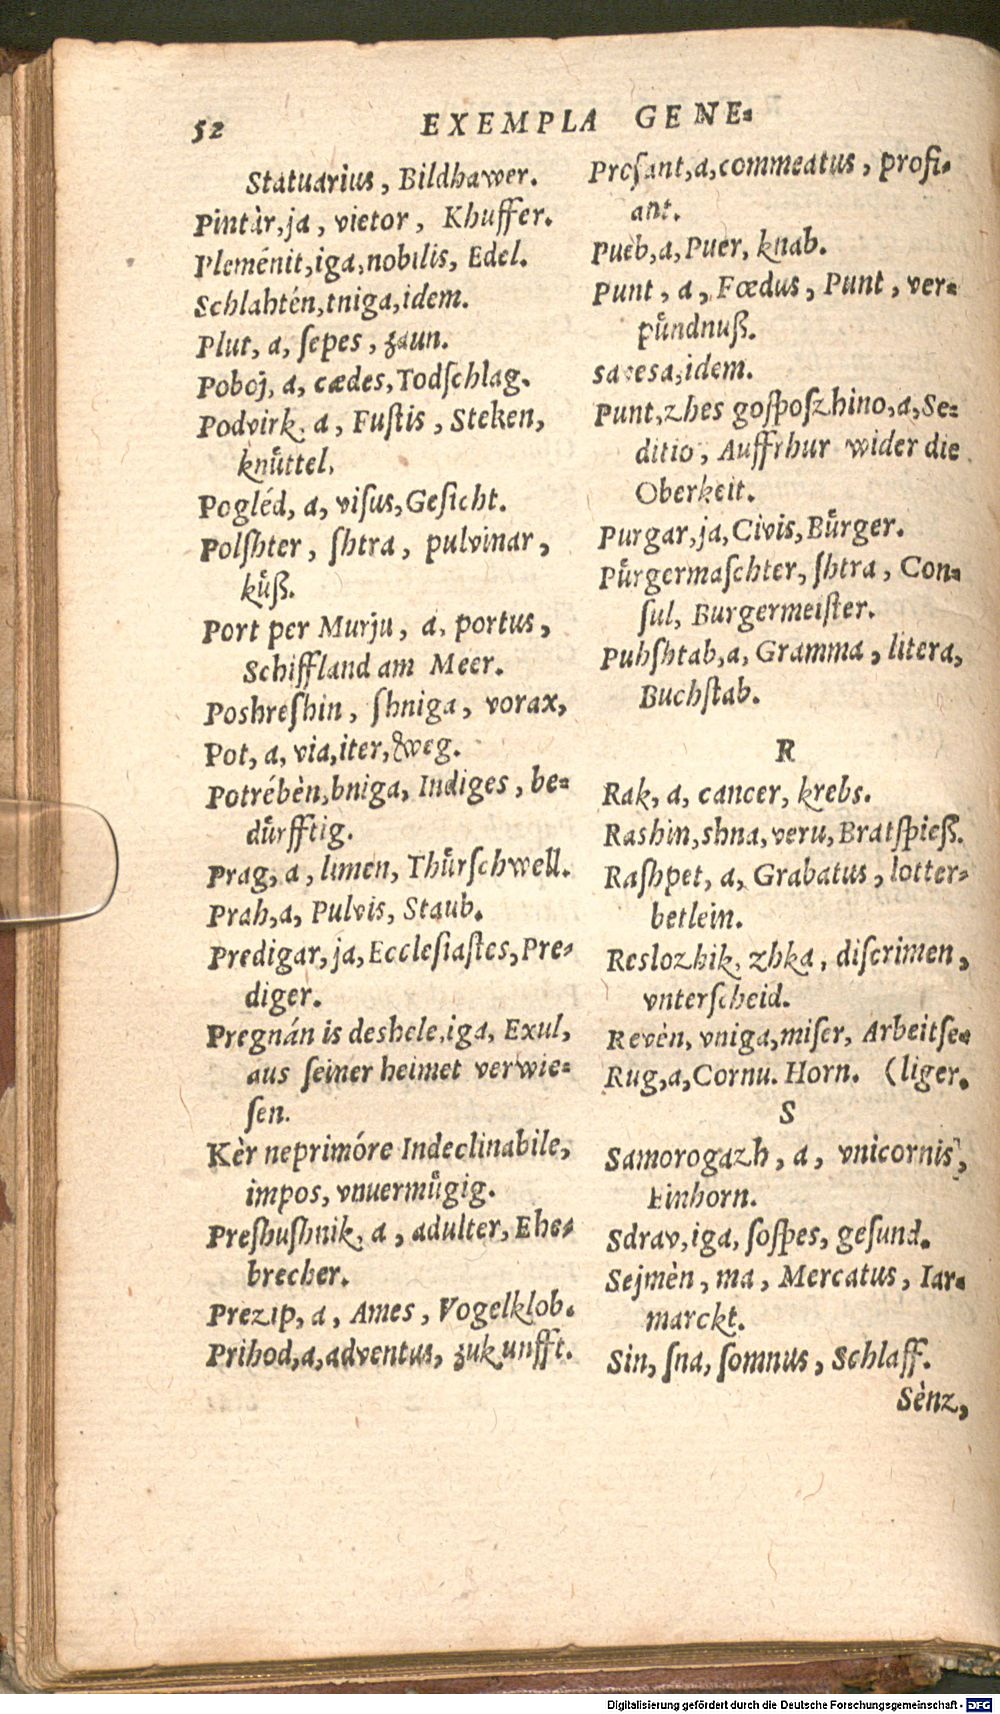 52 EXEMPLA GENE-
Statuarius, Bildhawer.
Pintàr,ja, vietor, Khuffer.
Pleménit,iga,nobilis, Edel.
Schlahtén,tniga,idem.
Plut, a, ſepes, zaun.
Poboj, a, cædes,Todſchlag.
Podvirk, a, Fuſtis, Steken,
knuͤttel.
Pogléd, a, viſus,Geſicht.
Polſhter, ſhtra, pulvinar,
kuͤß.
Port per Murju, a, portus,
Schiffland am Meer.
Poshreſhin, ſhniga, vorax,
Pot, a, via,iter, weg.
Potrébèn,bniga, Indiges, be-
duͤrfftig.
Prag, a, limen, Thuͤrſchwell.
Prah,a, Pulvis, Staub.
Predigar,ja,Eccleſiaſtes,Pre-
diger.
Pregnán is deshele,iga, Exul,
aus ſeiner heimet verwie-
ſen.
Kèr neprimóre Indeclinabile,
impos, vnuermuͤgig.
Preſhuſhnik, a, adulter, Ehe-
brecher.
Prezip, a, Ames, Vogelklob.
Prihod,a,adventus, zukunfft.
Proſant,a,commeatus, profi-
ant.
Pueb,a, Puer, knab.
Punt, a, Fœdus, Punt, ver-
puͤndnuß.
savesa,idem.
Punt,zhes goſpoſzhino,a,Se-
ditio, Auffrhur wider die
Oberkeit.
Purgar,ja,Civis,Buͤrger.
Puͤrgermaſchter, ſhtra, Con-
ſul, Burgermeiſter.
Puhſhtab,a, Gramma, litera,
Buchſtab.
R
Rak, a, cancer, krebs.
Rashin,shna, veru, Bratſpieß.
Raſhpet, a, Grabatus, lotter-
betlein.
Reslozhik, zhka, diſcrimen,
vnterſcheid.
Revèn, vniga,miſer, Arbeitſe-
Rug,a,Cornu. Horn. (liger.
S
Samorogazh, a, vnicornis,
Einhorn.
Sdrav,iga, ſoſpes, geſund.
Sejmèn, ma, Mercatus, Iar-
marckt.
Sin, ſna, ſomnus, Schlaff.
Sènz,
Digitalisierung gefördert durch die Deutsche Forschungsgemeinschaft - DFG